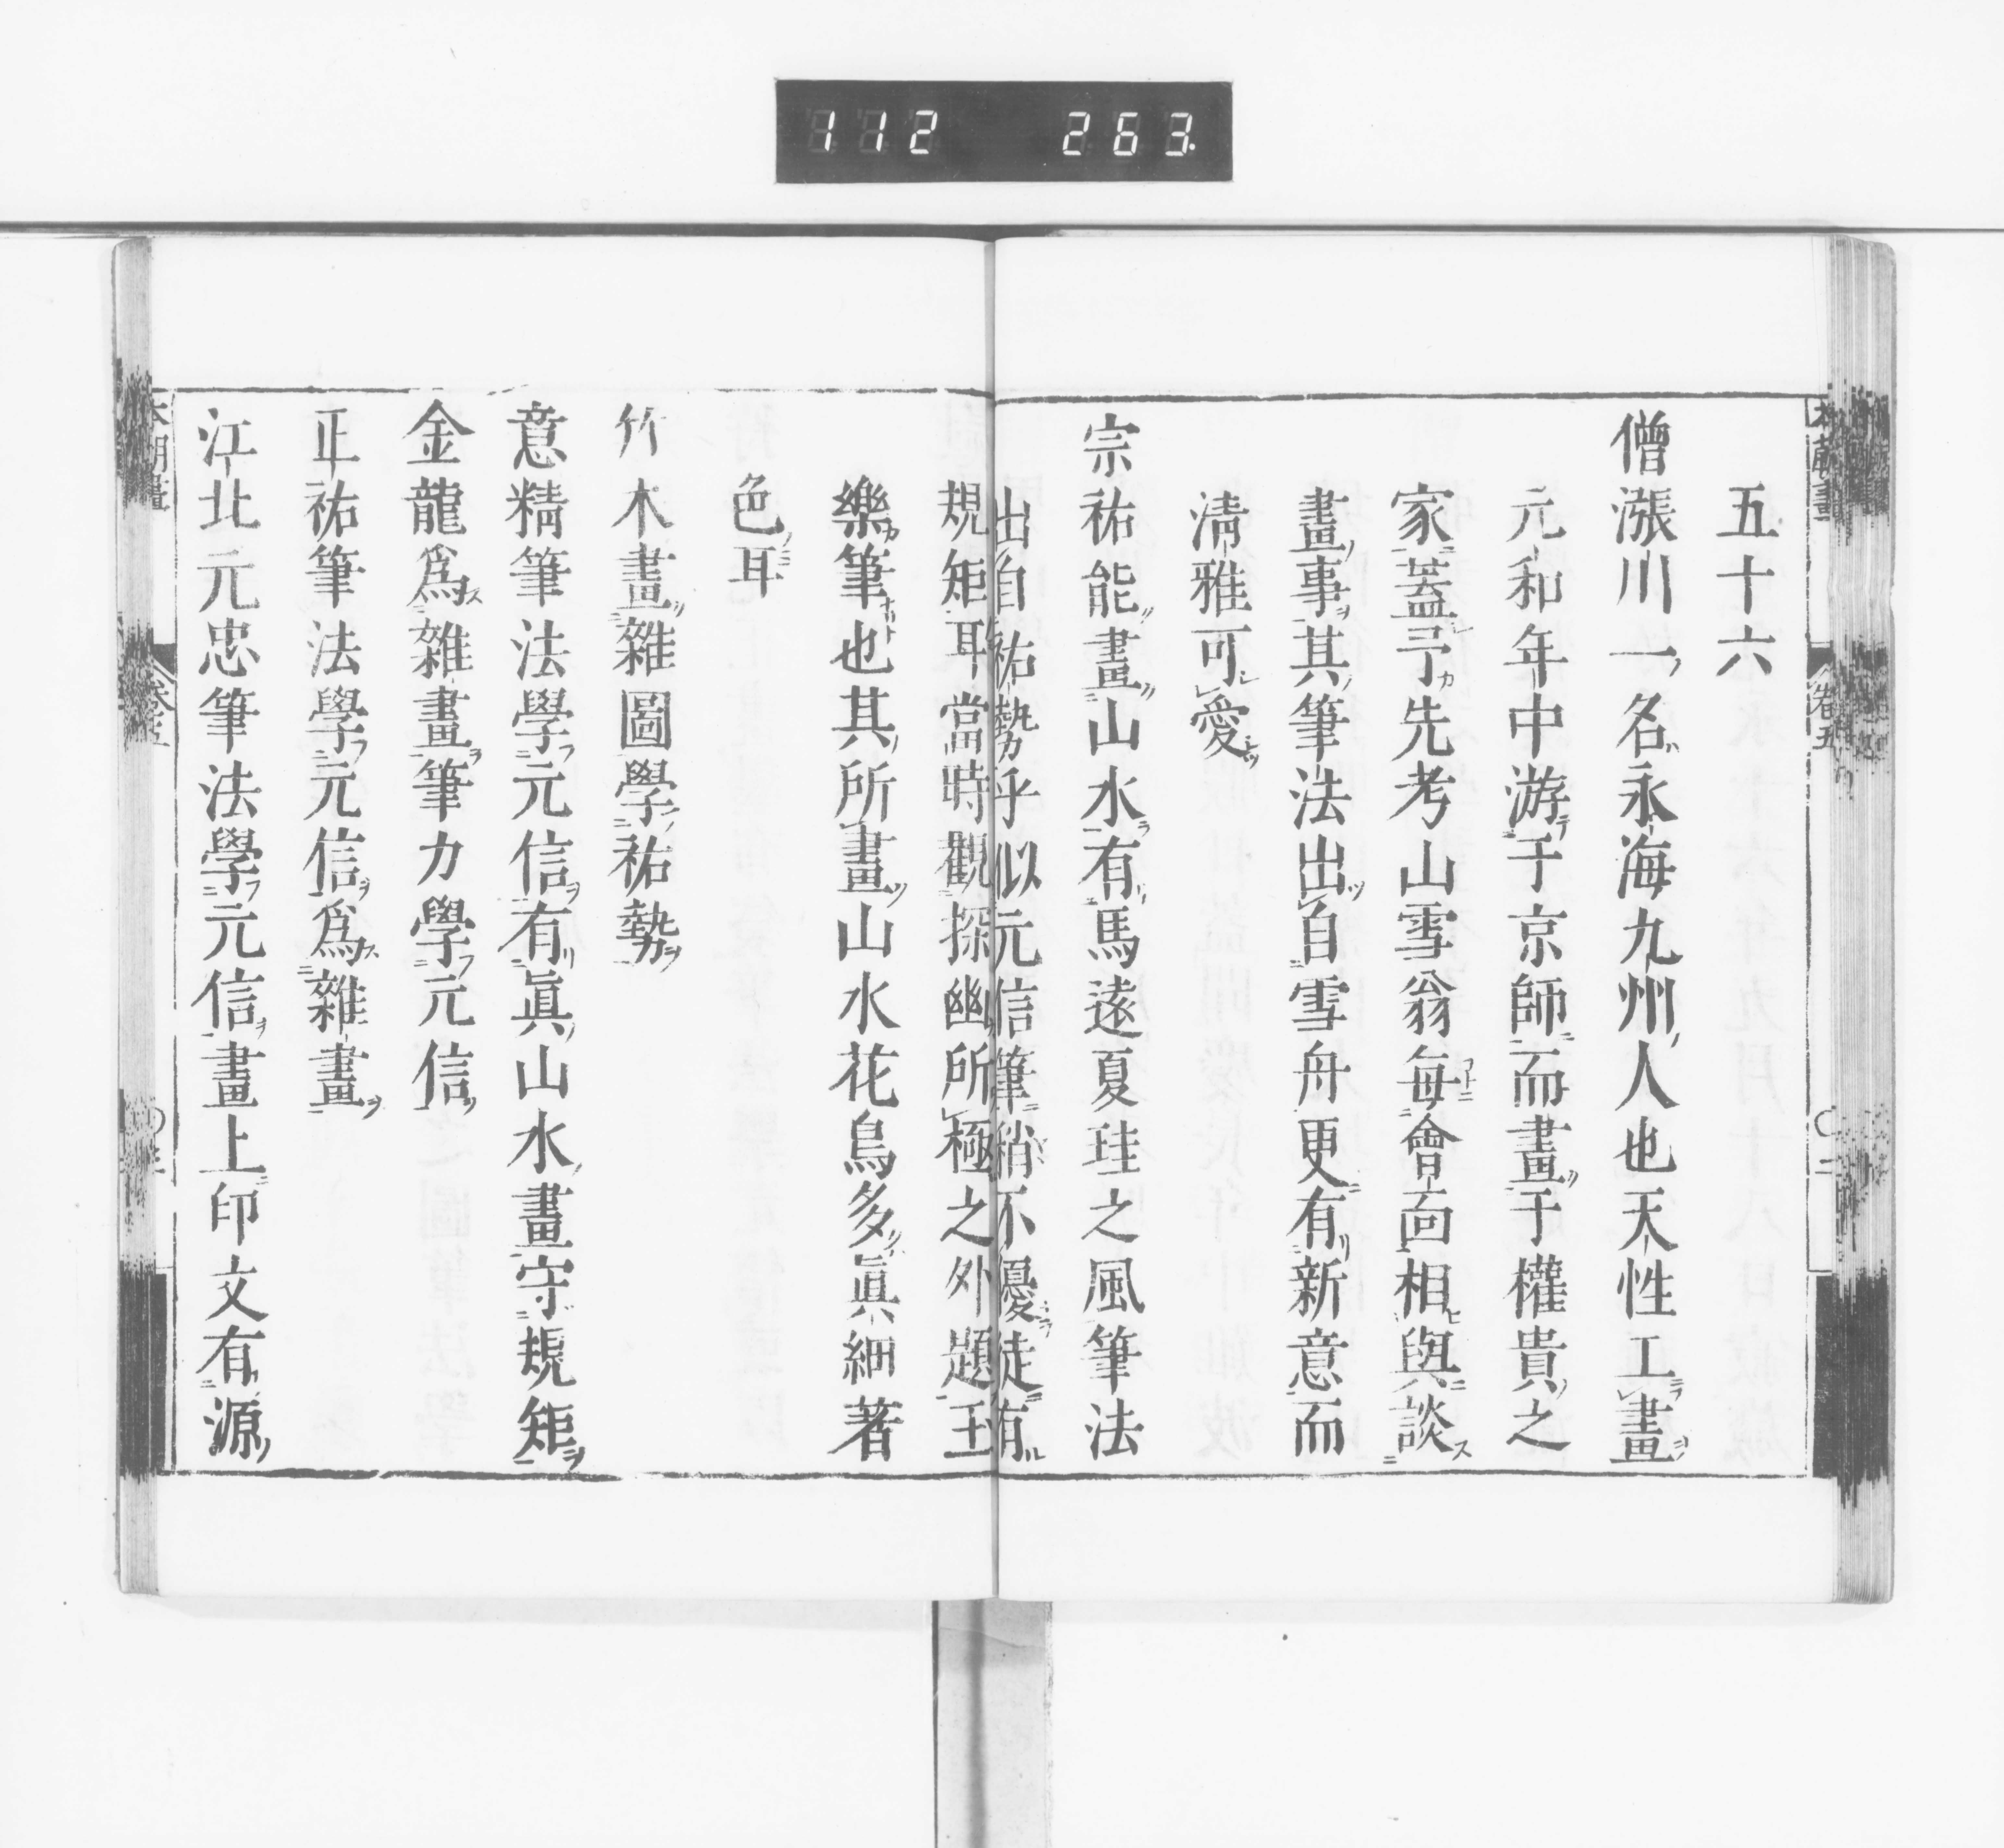 112 263.
五十六
僧漲川一名永海九州人也天性工畫
元和年中游于京師而畫于權貴之
家蓋予先考山雪翁每會面相與談
畫事其筆法出自雪舟更有新意而
淸雅可愛
宗祐能畫山水有馬遠夏珪之風筆法
出自祐勢乎似元信筆稍不優徒有
規矩耳當時觀探幽所極之外題玉
樂筆也其所畫山水花鳥多眞細著
色耳
竹木畫雜圖學祐勢
意精筆法學元信有眞山水畫守規矩
金龍爲雜畫筆力學元信
正祐筆法學元信爲雜畫
江北元忠筆法學元信畫上印文有源